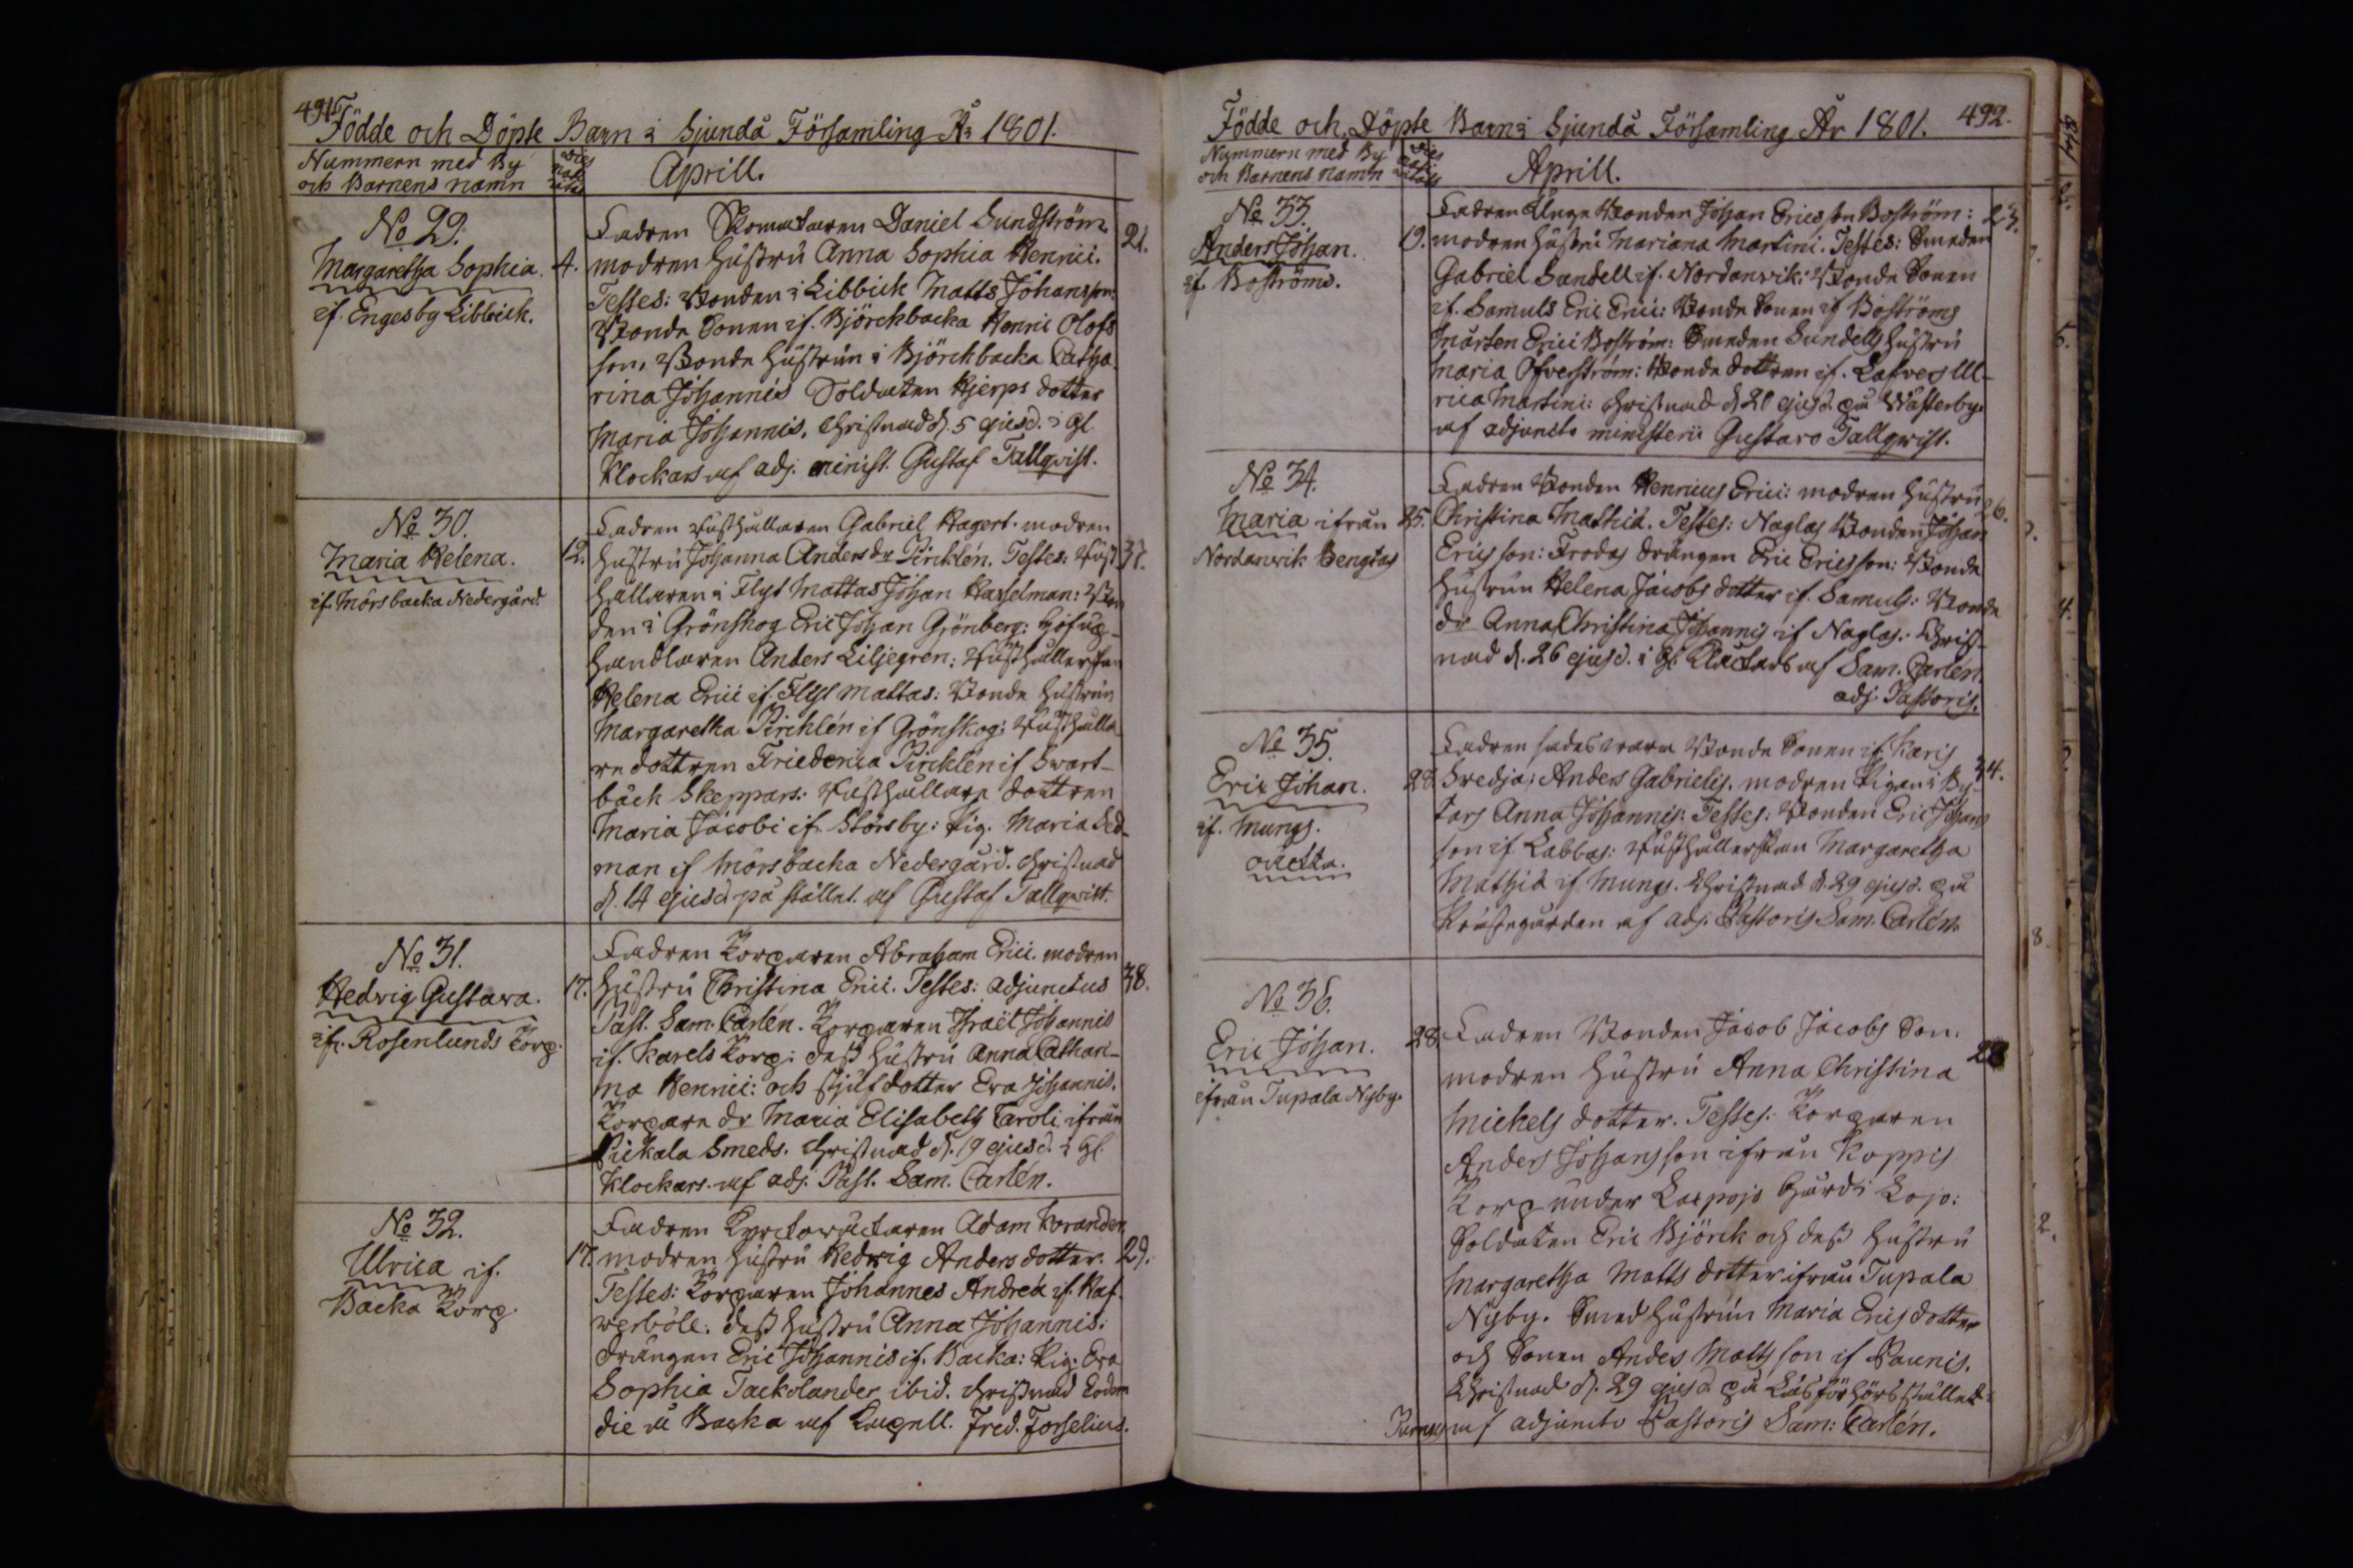 491.
Födde och Döpte Barn i Sjundå Församling År 1801.
Nummern med By
och Barnens namn
Dies
nati
vitatis
Aprill.
No 29.
Margaretha Sophia.
if. Engesby Libbick.
4.
Fadren Skomakaren Daniel Sundström.
modren hustru Anna Sophia Henrici.
Testes: Bonden i Libbick Matts Johansson:
Bonde Sonen if. Björckbacka Henric Olofs
son, Bonde hustrun i Björckbacka Catha
rina Johannis Soldaten Hjerps dotter
Maria Johannis. Christnad d. 5 ejusd. i Gl.
Klockars af adj. minist. Gustaf Tallqvist.
21.
No 30.
Maria Helena.
if. Mörsbacka Nedergård.
12.
Fadren Rusthållaren Gabriel Hagert. modren
hustru Johanna Anders dr Pircklén. Testes: Rust
hållaren i Flyt Mattas Johan Hasselman: Bon
den i Grönskog Eric Johan Grönberg:
handlaren Anders Liljegren: Rusthållerskan
Helena Erici if. Flyt Mattas: Bonde hustrun
Margaretha Pircklén if Grönskog: Rusthålla
re dottren Friederica Pircklén if Swart-
bäck Skeppars: Rusthållare dottren
Maria Jacobi if. Störsby: Pig. Maria Led-
man if Mörsbacka Nedergård. Christnad
d. 14 ejusd på stället. af Gustaf Tallqwist.
37.
No 31.
Hedvig Gustava.
ifr. Rosenlunds Torp.
17.
Fadren Torparen Abraham Erici. modren
hustru Christina Erici. Testes: adjunctus
Past. Sam. Carlén. Torparen Israël Johannis
if. Karels Torp: dess hustru Anna Cathari-
na Henrici: och stjufdotter Eva Johannis.
Torpare dr Maria Elisabeth Caroli ifrån
Pickala Smeds. Christnad d. 19 ejusd. i Gl.
Klockars. af adj. Past. Sam. Carlén.
38.
No 32.
Ulrica if.
Backa Torp.
17.
Fadren Kyrckowäktaren Adam Forander
modren hustru Hedvig Anders dotter.
Testes: Torparen Johannes Andreæ if. Haf
werböle: dess hustru Anna Johannis:
drängen Eric Johannis if. Backa: Pig: Eva
Sophia Tackolander ibid. Christnad Eodem
die å Backa af Capell. Fred. Forselius.
29.
492.
Födde och Döpte Barn i Sjundå Församling År 1801.
Nummern med By
och Barnens namn
Dies
nati
vitatis
Aprill.
No 33.
Anders Johan.
if. Boströms.
19.
Fadren Unga Bonden Johan Ericsson Boström:
modren hustru Mariana Martini. Testes: Smeden
Gabriel Sundell if. Nordanvik: Bonde Sonen
if. Samuls Eric Erici: Bonde Sonen if Boströms
Mårten Erici Boström: Smeden Sundells hustru
Maria Öfverström: Bonde dottren if. Lafvers Ul-
rica Martini: Christnad d 20 ejusd. på Wästerby.
af adjuncto ministerii Gustavo Tallqwist.
23.
No 34.
Maria ifrån
Nordanvik Bengtas
25.
Fadren Bonden Henricus Erici: modren hustru
Christina Mathiæ. Testes: Naglas Bonden Johan
Ericsson: Frodas drängen Eric Ericsson: Bonde
hustrun Helena Jacobs dotter if. Samuls: Bonde
dr Anna Christina Johannis if Naglas. Christ-
nad d. 26 ejusd. i Gl. Klockars af Sam. Carlén.
adj. Pastoris.
26.
No 35.
Eric Johan.
if. Mungs.
oäckta.
28.
Fadren Bonde Sonen if. Karis
Svedja: Anders Gabrielis. modren Pigan i By-
tars Anna Johannis. Testes: Bonden Eric Johans
son if. Labbas: Rusthållerskan Margaretha
Mathiæ if Mungs. Christnad d. 29 ejusd. på
Prästegården af adj. Pastoris Sam. Carlén.
34.
No 36.
Eric Johan.
ifrån Tupala Nyby.
28.
Fadren Bonden Jacob Jacobs Son.
modren hustru Anna Christina
Michels dotter. Testes. Torparen
Anders Johansson ifrån Koppis
Torp under Gård i Lojo:
Soldaten Eric Björck och dess hustru
Margaretha Matts dotter ifrån Tupala
Nyby. Smed hustrun Maria Erics dotter
och Sonen Anders Mattsson if Paunis.
Christnad d. 29 ejusd. på Läsförhörsstället i
af adjuncto Pastoris Sam: Carlén.
28